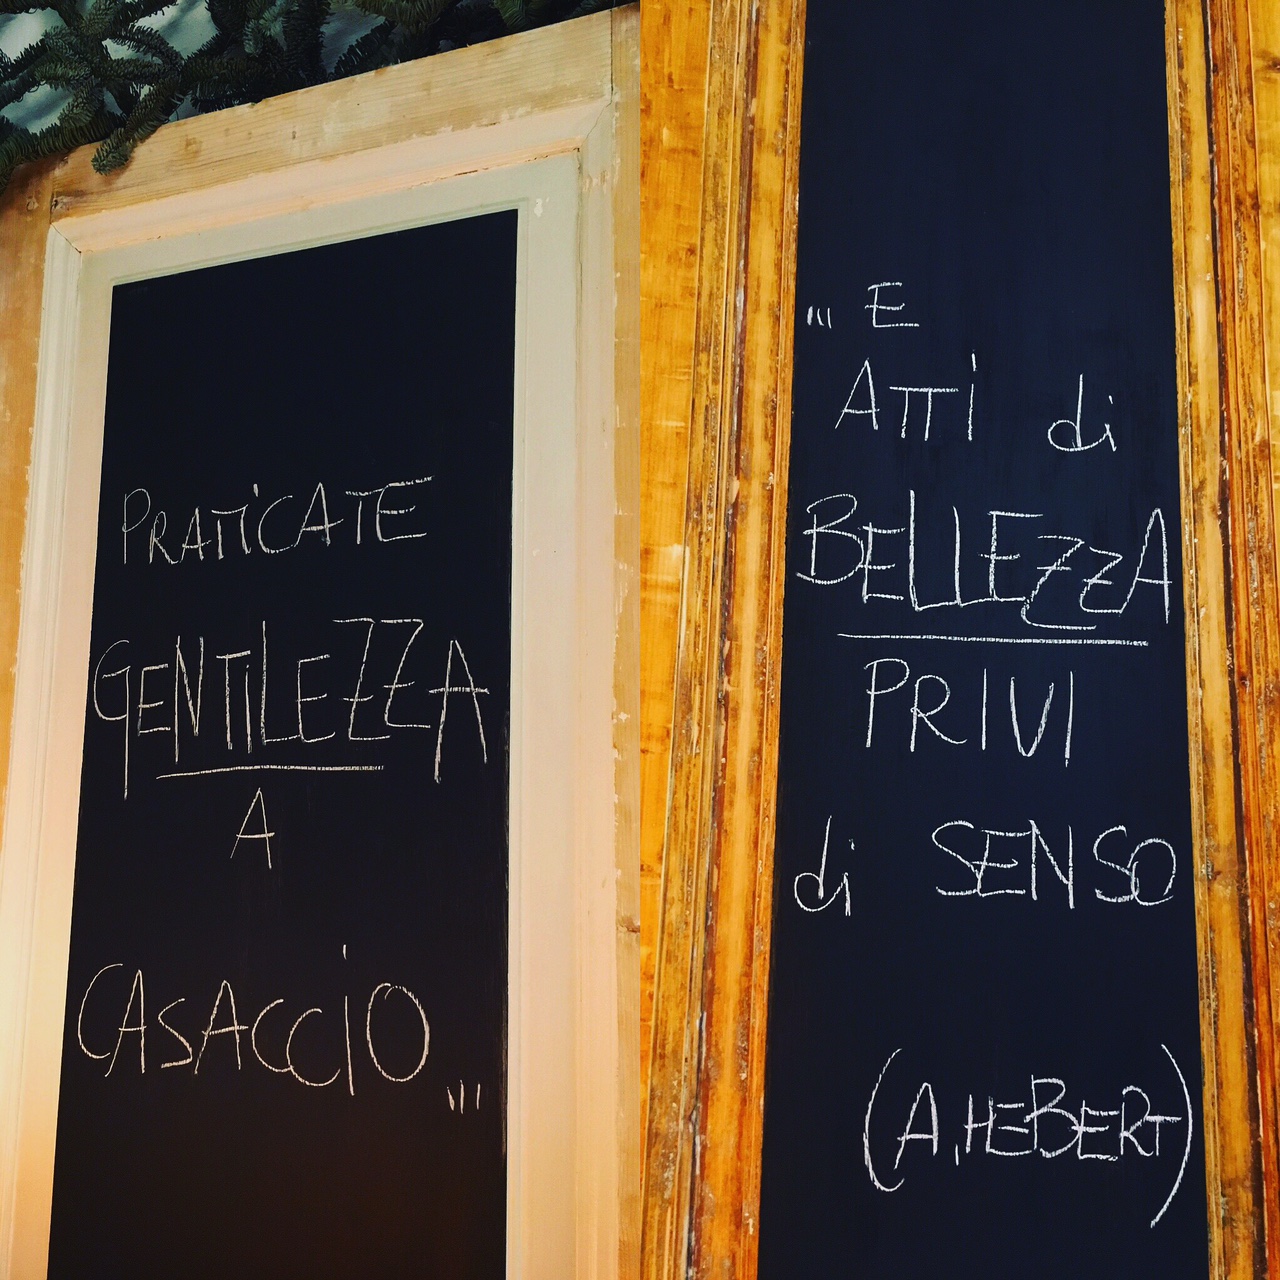 PRATiCATE
GENTiLEZZA
A
CASACCIO...
... E
ATTI di
BELLEZZA
PRIVI
di SENSO
(A. HEBERT)